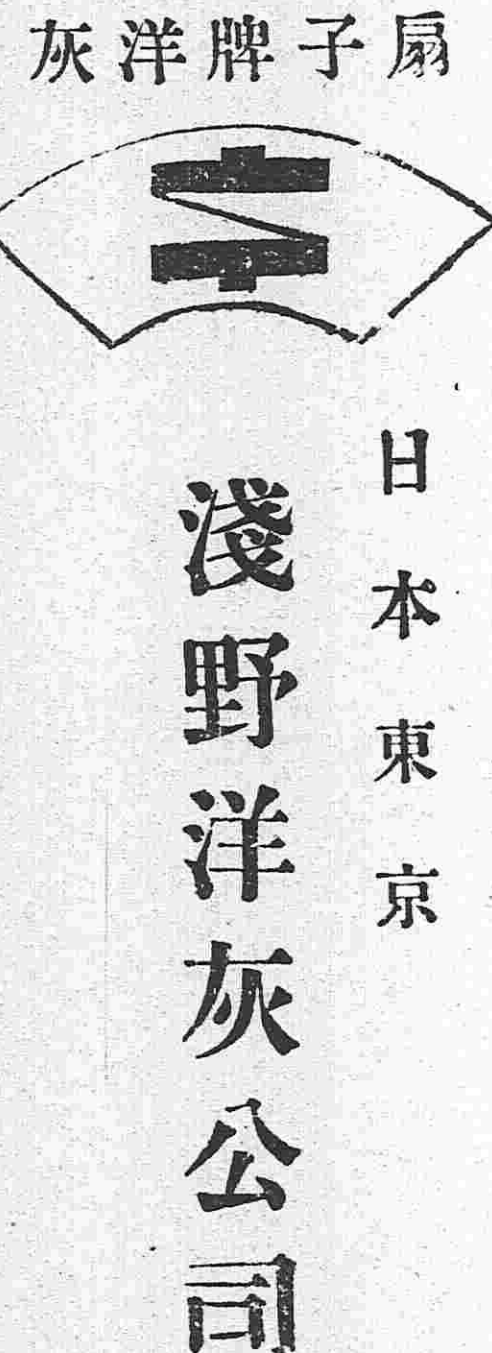 扇子牌洋灰
日本東京
淺野洋灰公司